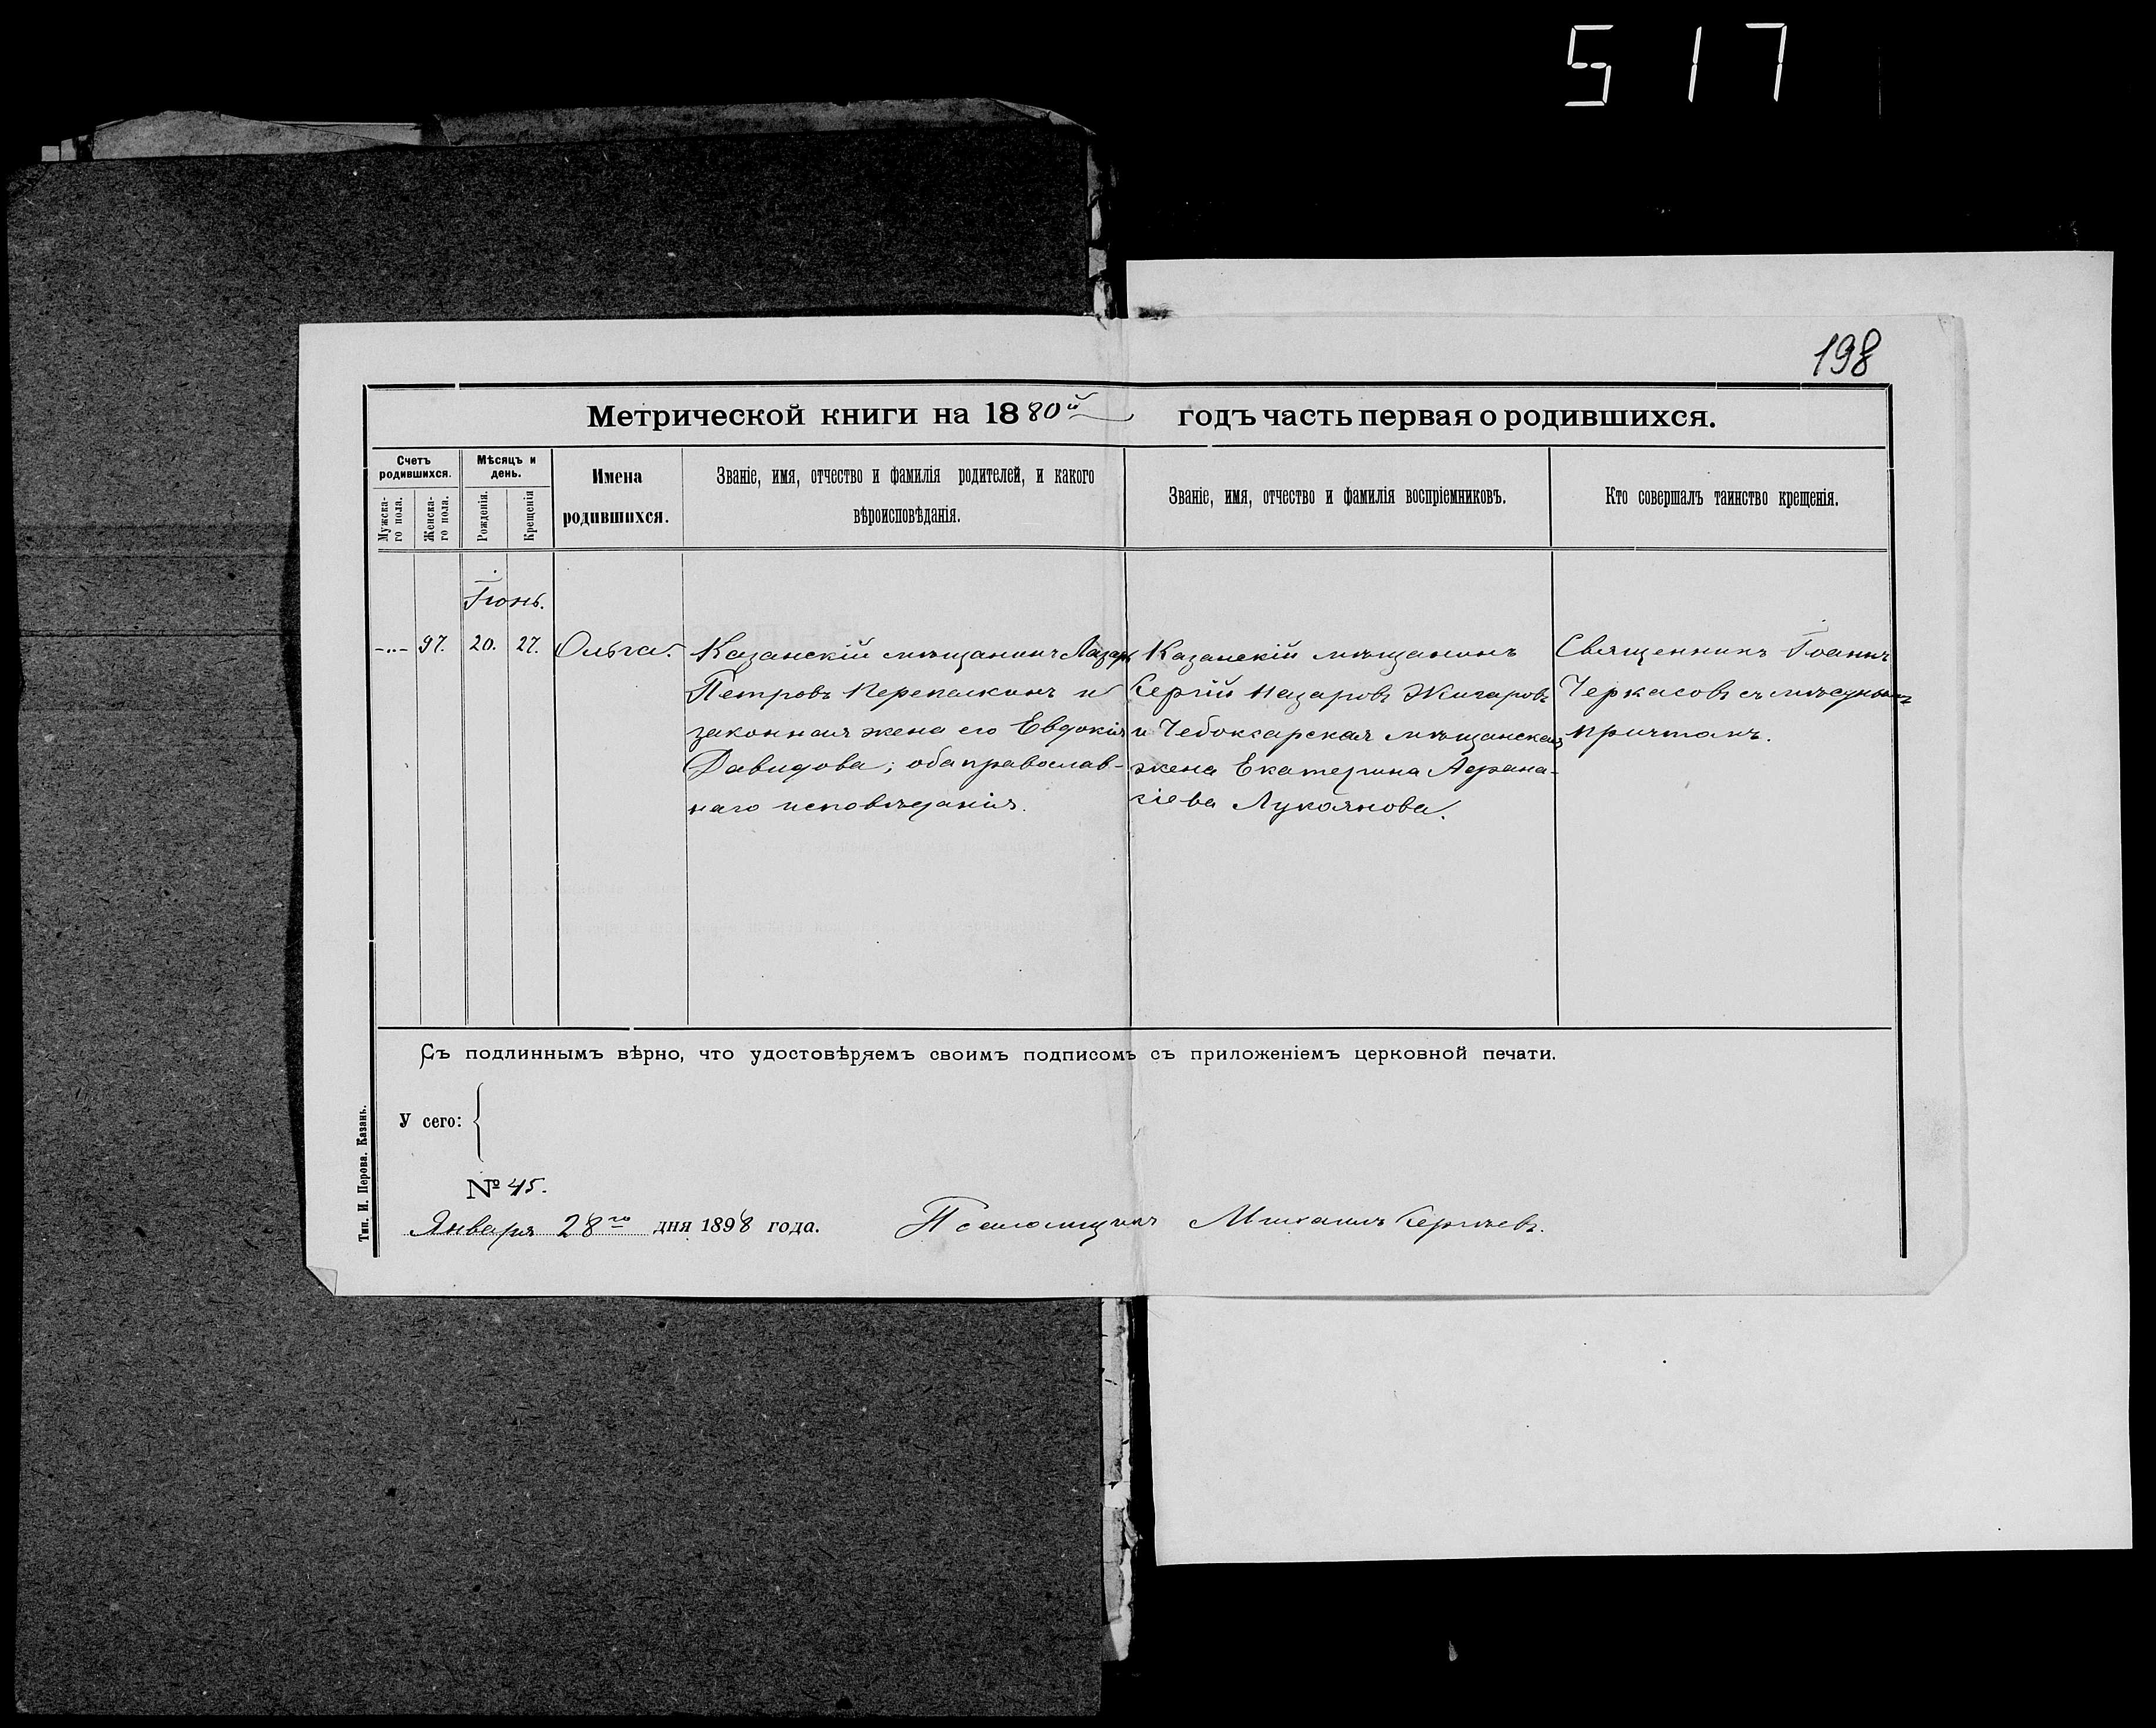 517
198
Метрической книги на 1880й годъ часть первая о родившихся.
Счетъ родившихся.
Мужска-
го пола.
Женска-
го пола.
Мѣсяцъ и день.
Рожденія.
Крещенія
Имена
родившихся.
Званіе, имя, отчество и фамилія родителей, и какого
вѣроисповѣданія.
Званіе, имя, отчество и фамилія воспріемниковъ.
Кто совершалъ таинство крещенія.
Іюнь.
-"- 97. 20. 27. Ольга.
Казанскій мѣщанинъ Лазарь
Петровъ Перепелкинъ и
законная жена его Евдокія
Давидова; оба православ-
наго исповѣданія.
Казанскій мѣщанинъ
Сергій Назаровъ Жигаровъ
и Чебоксарская мѣщанская
жена Екатерина
Лукоянова.
Священникъ Іоаннъ
Черкасовъ съ мѣстнымъ
причтомъ.
Съ подлиннымъ вѣрно, что удостовѣряемъ своимъ подписомъ съ приложеніемъ церковной печати.
У сего:
№ 45.
Января 28го дня 1898 года.
Псаломщикъ Михаилъ Сергѣевъ.
Тип. И. Перова. Казань.